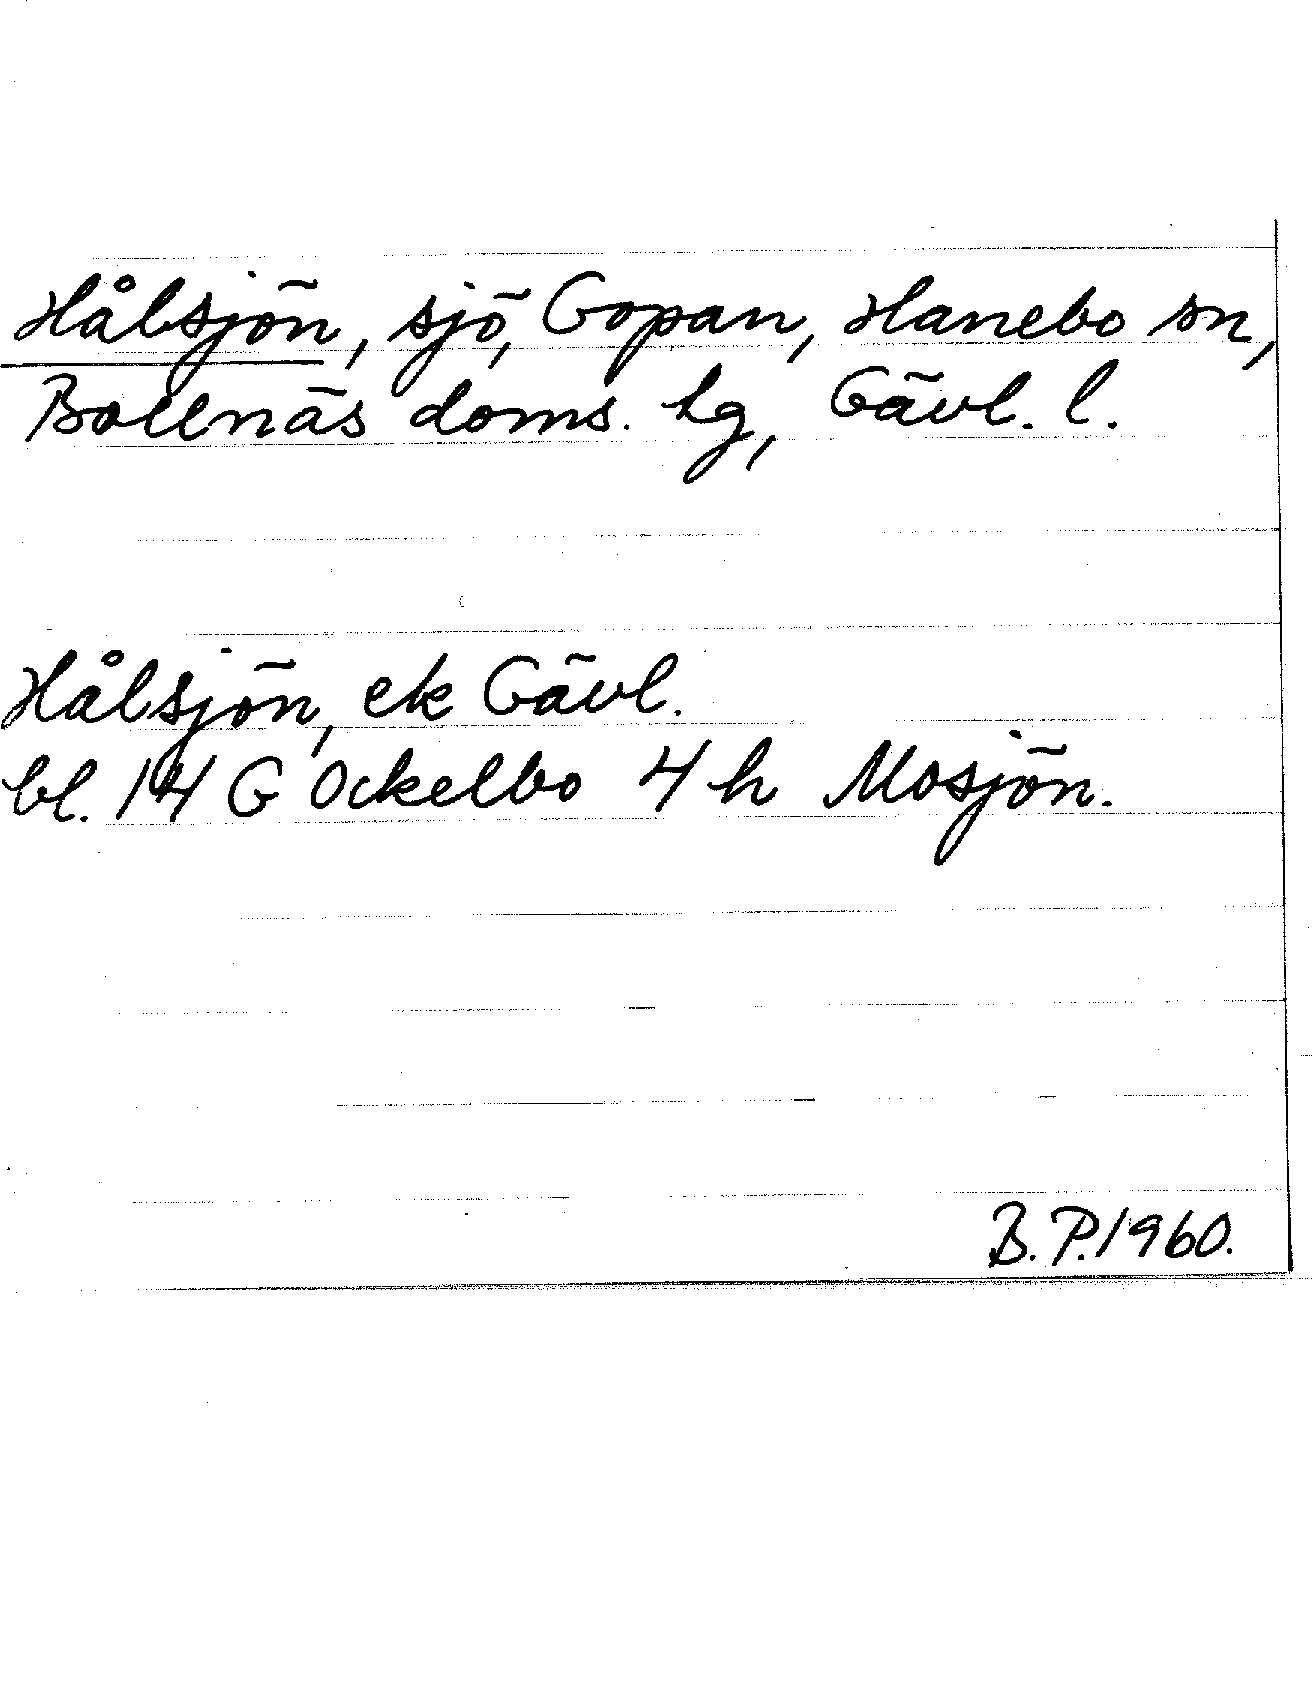 Hålsjön, sjö, Gopan, Hanebo sn,
Bollnäs doms. hg, Gävl. l.
Hålsjön, ek Gävl.
bl. 14 G Ockelbo 4 h Mosjön.
B.P. 1960.